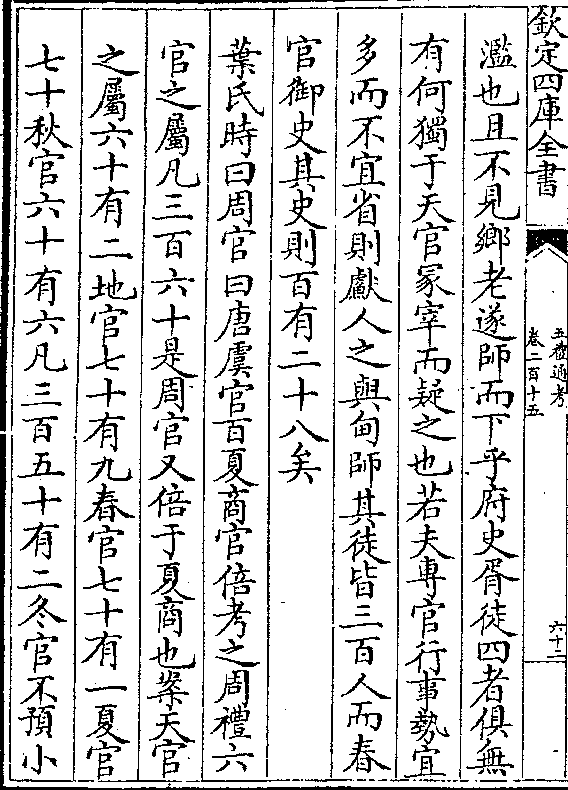 欽定四庫全書
五禮通考
卷二百十五
六十二
濫也且不見鄉老遂師而下乎府史胥徒四者俱無
有何獨于天官冢宰而疑之也若夫專官行事勢宜
多而不宜省則獻人之與甸師其徒皆三百人而春
官御史其史則百有二十八矣
葉氏時曰周官曰唐虞官百夏商官倍考之周禮六
官之屬凡三百六十是周官又倍于夏商也案天官
之屬六十有二地官七十有九春官七十有一夏官
七十秋官六十有六凡三百五十有二冬官不預小